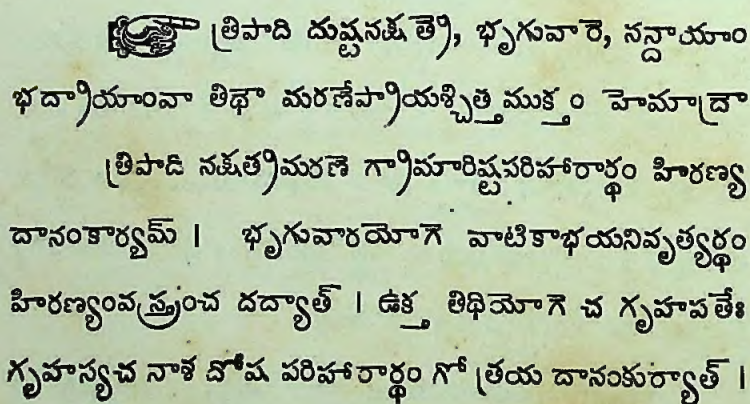 ☞ త్రిపాది దుష్టనక్షత్రే, భృగువారె, నన్దాయాం
భద్రాయాంవా తిథౌ మరణేప్రాయశ్చిత్తముక్తం హెమాద్రౌ
త్రిపాది నక్షత్రమరణె గ్రామారిష్టపరిహారార్థం హిరణ్య
దానంకార్యమ్ । భృగువారయోగె వాటికాభయనివృత్యర్థం
హిరణ్యంవస్త్రంచ దద్యాత్ । ఉక్త తిథియోగె చ గృహపతేః
గృహస్యచ నాశ దోష పరిహారార్థం గోత్రయ దానంకుర్యాత్ ।